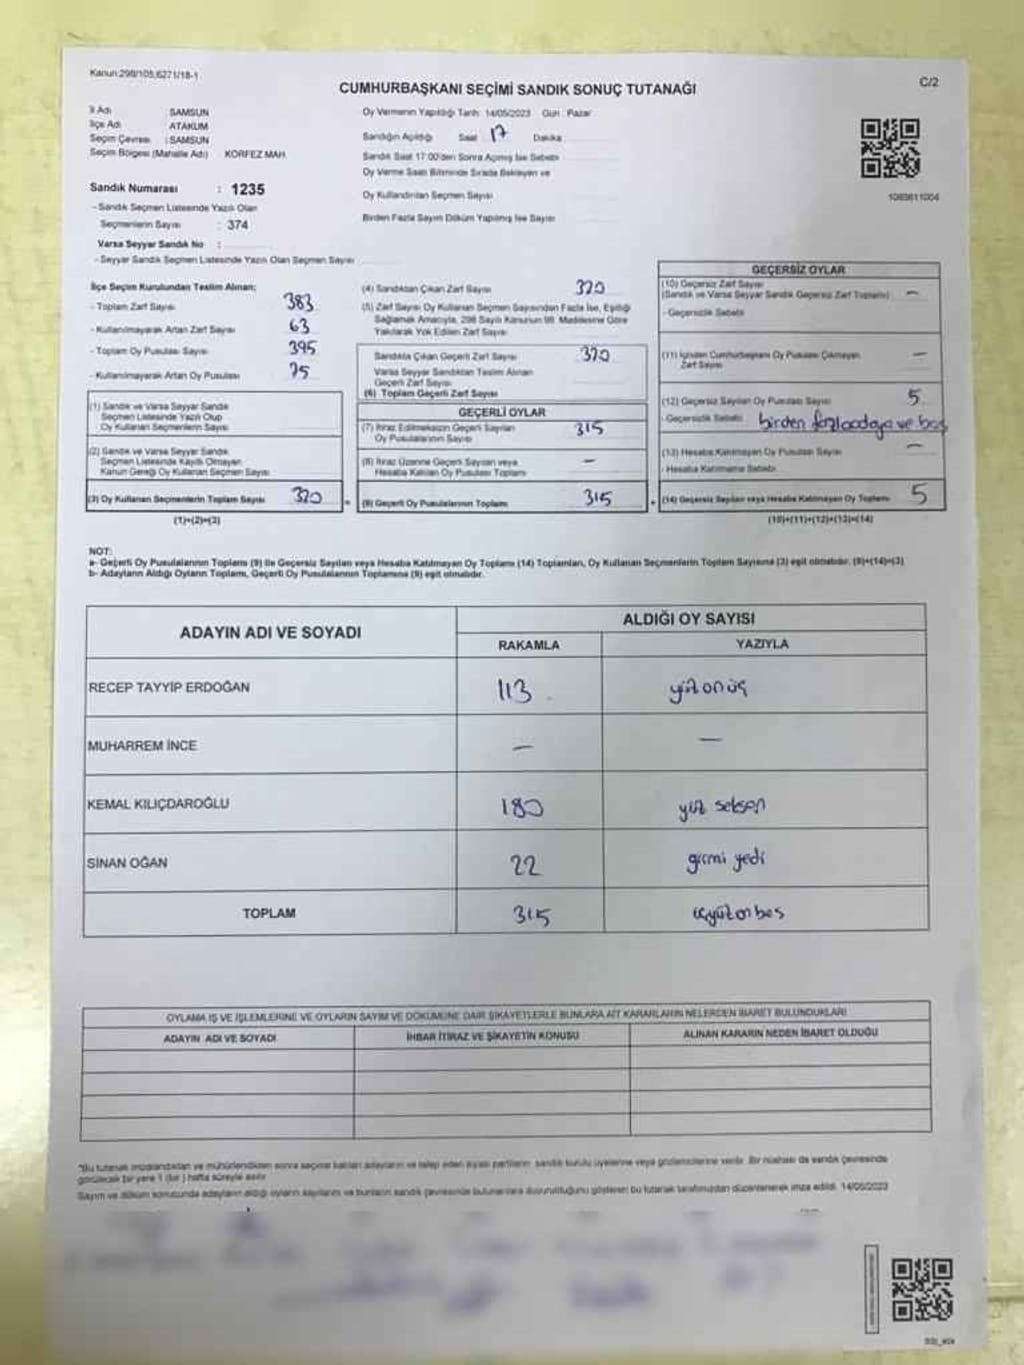 Kanun:298/105,6271/18-1
C/2
CUMHURBAŞKANI SEÇİMİ SANDIK SONUÇ TUTANAĞI
İl Adı SAMSUN
İlçe Adı ATAKUM
Seçim Çevresi : SAMSUN
Seçim Bölgesi (Mahalle Adı) KÖRFEZ MAH.
Sandık Numarası : 1235
- Sandık Seçmen Listesinde Yazılı Olan
Seçmenlerin Sayısı : 374
Varsa Seyyar Sandık No :
- Seyyar Sandık Seçmen Listesinde Yazılı Olan Seçmen Sayısı
Oy Vermenin Yapıldığı Tarih 14/05/2023 Gün : Pazar
Sandığın Açıldığı Saat 17 Dakika
Sandık Saat 17:00'den Sonra Açılmış İse Sebebi
Oy Verme Saati Bitiminde Sırada Bekleyen ve
Oy Kullandırılan Seçmen Sayısı
Birden Fazla Sayım Döküm Yapılmış İse Sayısı
İlçe Seçim Kurulundan Teslim Alınan;
- Toplam Zarf Sayısı 383
- Kullanılmayarak Artan Zarf Sayısı 63
- Toplam Oy Pusulası Sayısı 395
- Kullanılmayarak Artan Oy Pusulası 75
(1) Sandık ve Varsa Seyyar Sandık
Seçmen Listesinde Yazılı Olup
Oy Kullanan Seçmenlerin Sayısı
(2) Sandık ve Varsa Seyyar Sandık
Seçmen Listesinde Kayıtlı Olmayan
Kanun Gereği Oy Kullanan Seçmen Sayısı
(3) Oy Kullanan Seçmenlerin Toplam Sayısı 320
(1)+(2)=(3)
(4) Sandıktan Çıkan Zarf Sayısı 320
(5) Zarf Sayısı Oy Kullanan Seçmen Sayısından Fazla İse, Eşitliği
Sağlamak Amacıyla, 298 Sayılı Kanunun 98. Maddesine Göre
Yakılarak Yok Edilen Zarf Sayısı
Sandıkta Çıkan Geçerli Zarf Sayısı 320
Varsa Seyyar Sandıktan Teslim Alınan
Geçerli Zarf Sayısı
(6) Toplam Geçerli Zarf Sayısı
GEÇERLİ OYLAR
(7) İtiraz Edilmeksizin Geçerli Sayılan
Oy Pusulalarının Sayısı 315
(8) İtiraz Üzerine Geçerli Sayılan veya
Hesaba Katılan Oy Pusulası Toplamı –
= (9) Geçerli Oy Pusulalarının Toplamı 315
GEÇERSİZ OYLAR
(10) Geçersiz Zarf Sayısı
(Sandık ve Varsa Seyyar Sandık Geçersiz Zarf Toplamı) –
- Geçersizlik Sebebi
(11) İçinden Cumhurbaşkanı Oy Pusulası Çıkmayan
Zarf Sayısı –
(12) Geçersiz Sayılan Oy Pusulası Sayısı 5
- Geçersizlik Sebebi birden fazla adaya ve boş
(13) Hesaba Katılmayan Oy Pusulası Sayısı –
- Hesaba Katılmama Sebebi
+ (14) Geçersiz Sayılan veya Hesaba Katılmayan Oy Toplamı 5
(10)+(11)+(12)+(13)=(14)
NOT:
a- Geçerli Oy Pusulalarının Toplamı (9) ile Geçersiz Sayılan veya Hesaba Katılmayan Oy Toplamı (14) Toplamları, Oy Kullanan Seçmenlerin Toplam Sayısına (3) eşit olmalıdır. (9)+(14)=(3)
b- Adayların Aldığı Oyların Toplamı, Geçerli Oy Pusulalarının Toplamına (9) eşit olmalıdır.
ADAYIN ADI VE SOYADI ALDIĞI OY SAYISI
RAKAMLA YAZIYLA
RECEP TAYYİP ERDOĞAN 113 yüzonüç
MUHARREM İNCE – –
KEMAL KILIÇDAROĞLU 180 yüz seksen
SİNAN OĞAN 22 girmi yedi
TOPLAM 315 üçyüzonbes
OYLAMA İŞ VE İŞLEMLERİNE VE OYLARIN SAYIM VE DÖKÜMÜNE DAİR ŞİKAYETLERLE BUNLARA AİT KARARLARIN NELERDEN İBARET BULUNDUKLARI
ADAYIN ADI VE SOYADI İHBAR İTİRAZ VE ŞİKAYETİN KONUSU ALINAN KARARIN NEDEN İBARET OLDUĞU
*Bu tutanak imzalandıktan ve mühürlendikten sonra seçime katılan adayların ve talep eden siyasi partilerin sandık kurulu üyelerine veya gözlemcilerine verilir. Bir nüshası da sandık çevresinde
görülecek bir yere 1 (bir) hafta süreyle asılır.
Sayım ve döküm sonucunda adayların aldığı oyların sayılarını ve bunların sandık çevresinde bulunanlara duyurulduğunu gösteren bu tutanak tarafımızdan düzenlenerek imza edildi. 14/05/2023